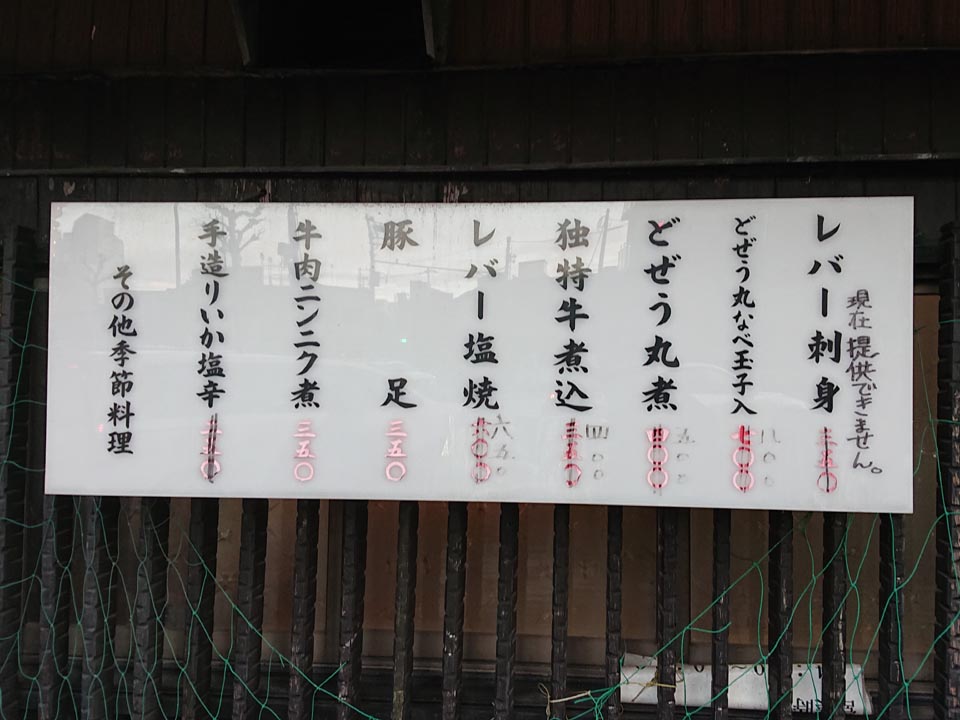 レバー刺身 三五〇
現在提供できません。
どぜう丸なべ玉子入 七〇〇 八〇〇
どぜう丸煮 四〇〇 五〇〇
独特牛煮込 三五〇 四〇〇
レバー塩焼 六〇〇 六五〇
豚足 三五〇
牛肉ニンニク煮 三五〇
手造りいか塩辛
その他季節料理